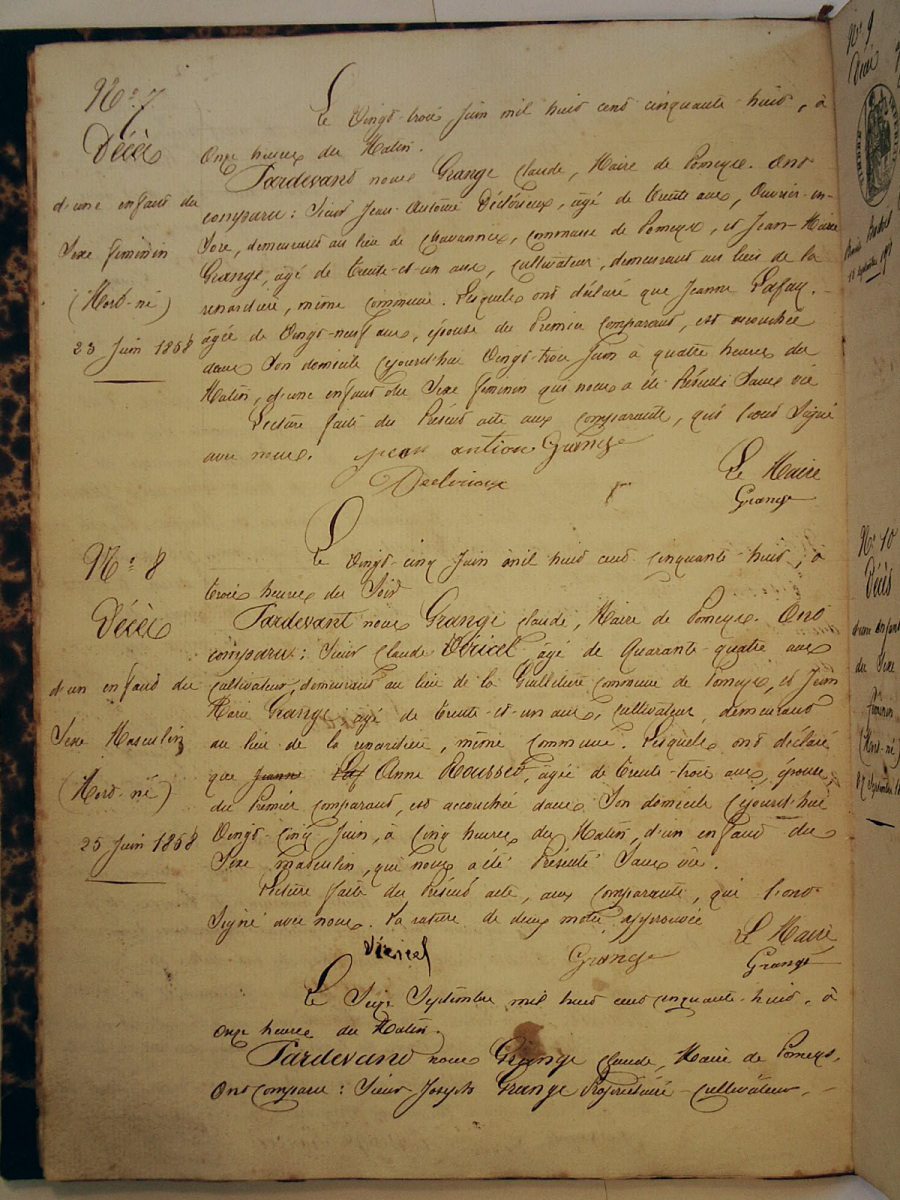 N° 7
Décès
d'une enfant du
Sexe féminin
(Mort-né)
23 Juin 1858
Le Vingt-trois Juin mil huit cent cinquante-huit, à
Onze heures du Matin.
Pardevant nous Grange Claude, Maire de Pomeys. Ont
comparu : Sieur Jean-Antoine Déclérieux, âgé de trente ans, Ouvrier-en-
Soie, demeurant au lieu de Chavannes, commune de Pomeys, et Jean-Marie
Grange, âgé de trente-et-un ans, cultivateur, demeurant au lieu de la
renardière, même commune. Lesquels ont déclaré que Jeanne Lafay.
âgée de Vingt-neuf ans, épouse du Premier comparant, est accouchée
dans Son domicile cejourd'hui Vingt-trois Juin à quatre heures du
Matin, d'une enfant du Sexe féminin qui nous a été Présenté Sans vie
Lecture faite du Présent acte aux comparants, qui l'ont Signé
avec nous. jean antione Grange
Declerieux
Le Maire
Grange
N° 8
Décès
d'un enfant du
Sexe Masculin
(Mort-né)
25 Juin 1858
Le Vingt-cinq Juin mil huit cent cinquante-huit, à
trois heures du Soir
Pardevant nous Grange Claude, Maire de Pomeys. Ont
comparu : Sieur Claude Véricel âgé de Quarante-quatre ans
cultivateur, demeurant au lieu de la commune de Pomeys, et Jean
Marie Grange âgé de trente-et-un ans, cultivateur, demeurant
au lieu de la renardière, même commune. Lesquels ont déclaré
que Jeanne Laf Anne Rousset, âgée de trente-trois ans, épouse
du Premier comparant, est accouchée dans Son domicile cejourd'hui
Vingt-cinq Juin, à cinq heures du Matin, d'un enfant du
Sexe masculin, qui nous a été Présenté Sans vie.
Lecture faite du Présent acte, aux comparants, qui l'ont
Signé avec nous. La rature de deux mots approuvée
Véricel
Grange
Le Maire
Grange
Le Seize Septembre mil huit cent cinquante-huit, à
Onze heures du Matin.
Pardevant nous Grange Claude, Maire de Pomeys.
Ont comparu : Sieur Joseph Grange Propriétaire-cultivateur
N° 9
Décès
N° 10
Décès
d'une enfant
du Sexe
féminin
(Mort-né)